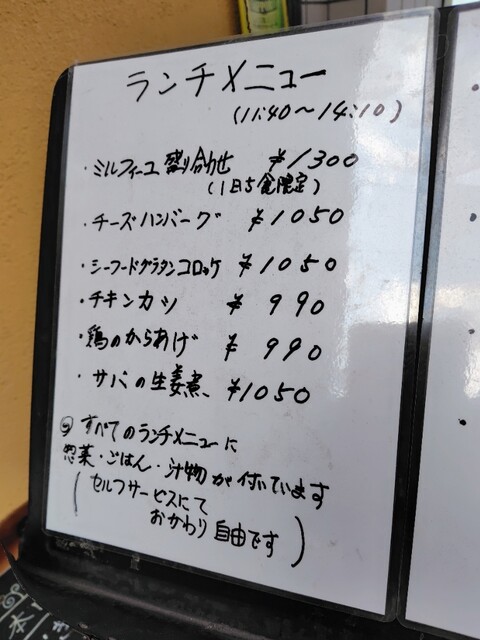 ランチメニュー
(11:40〜14:10)
・ミルフィーユ盛り合わせ ¥1300
(1日5食限定)
・チーズハンバーグ ¥1050
・シーフードグラタンコロッケ ¥1050
・チキンカツ ¥990
・鶏のからあげ ¥990
・サバの生姜煮 ¥1050
◎すべてのランチメニューに
惣菜・ごはん・汁物が付いています
(セルフサービスにて
おかわり自由です)